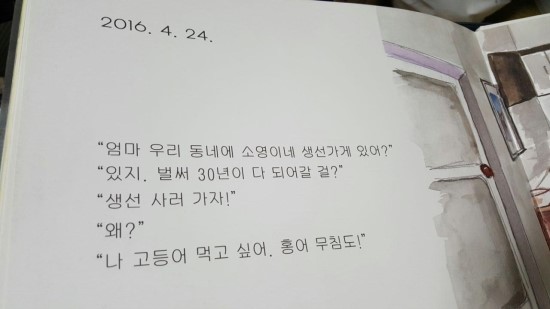 2016. 4. 24.
“엄마 우리 동네에 소영이네 생선가게 있어?”
“있지. 벌써 30년이 다 되어갈 걸?”
“생선 사러 가자!”
“왜?”
“나 고등어 먹고 싶어. 홍어 무침도!”